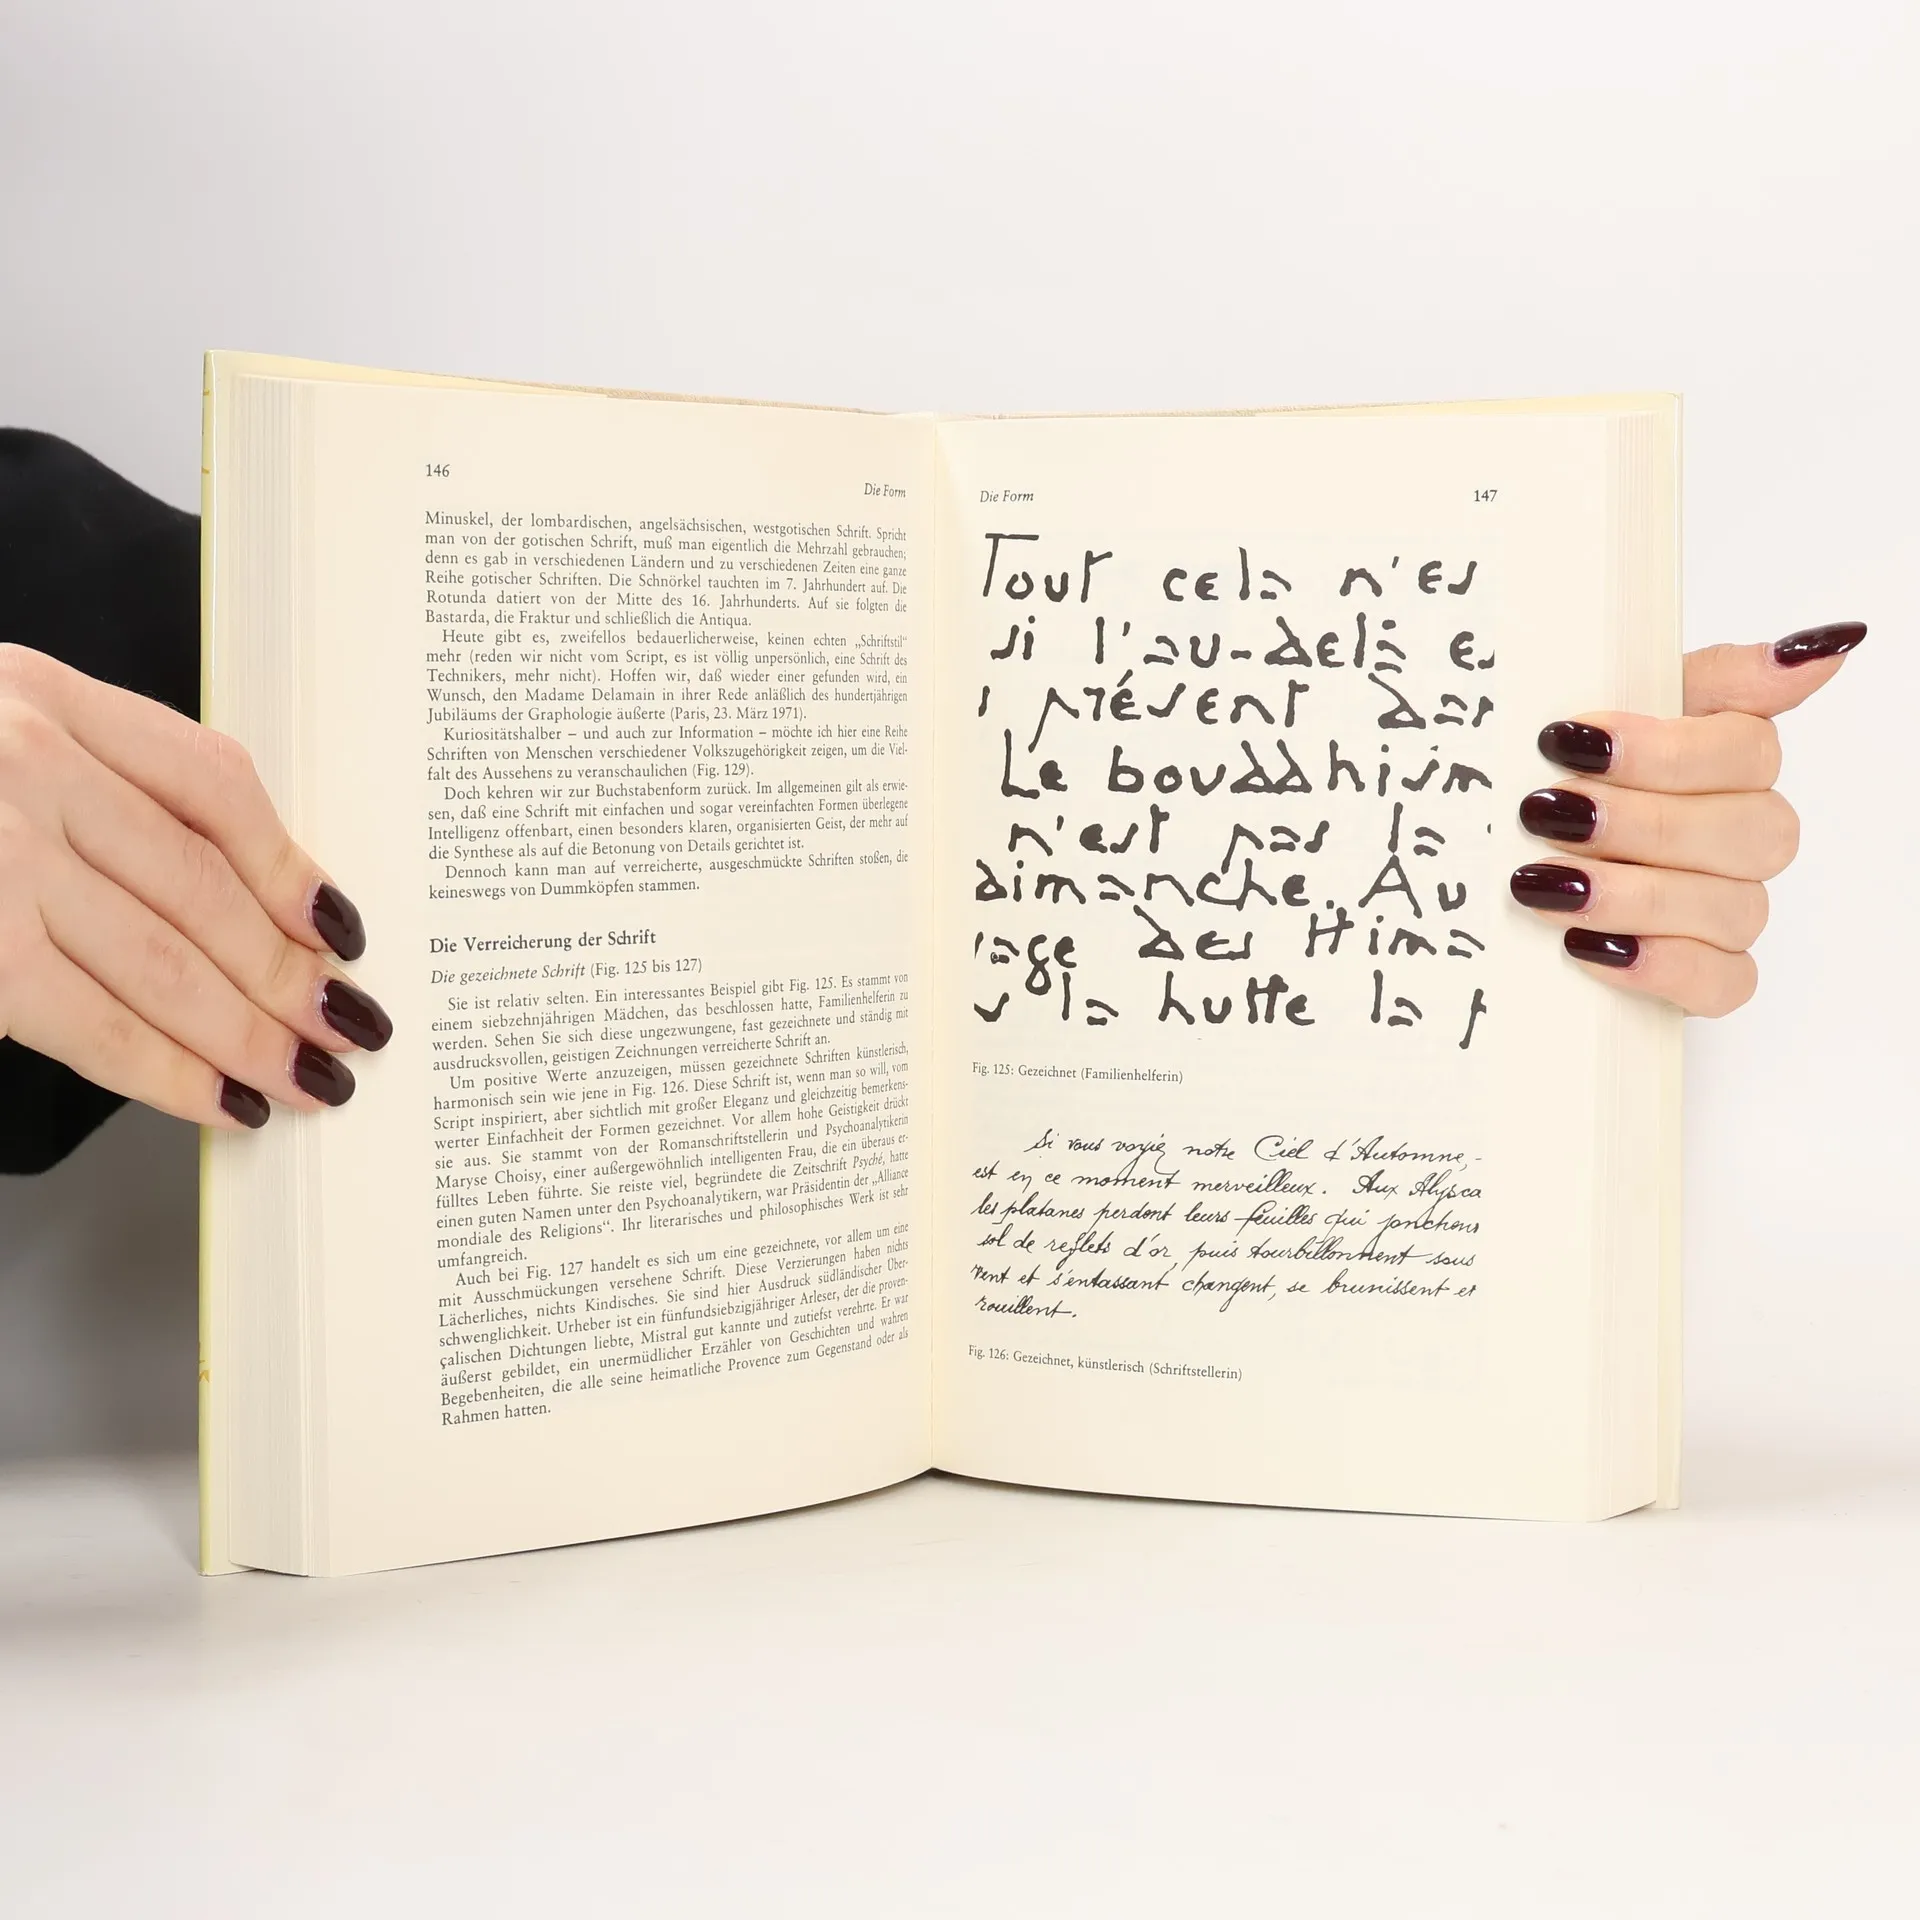 146
Die Form
Minuskel, der lombardischen, angelsächsischen, westgotischen Schrift. Spricht
man von der gotischen Schrift, muß man eigentlich die Mehrzahl gebrauchen;
denn es gab in verschiedenen Ländern und zu verschiedenen Zeiten eine ganze
Reihe gotischer Schriften. Die Schnörkel tauchten im 7. Jahrhundert auf. Die
Rotunda datiert von der Mitte des 16. Jahrhunderts. Auf sie folgten die
Bastarda, die Fraktur und schließlich die Antiqua.
Heute gibt es, zweifellos bedauerlicherweise, keinen echten „Schriftstil“
mehr (reden wir nicht vom Script, es ist völlig unpersönlich, eine Schrift des
Technikers, mehr nicht). Hoffen wir, daß wieder einer gefunden wird, ein
Wunsch, den Madame Delamain in ihrer Rede anläßlich des hundertjährigen
Jubiläums der Graphologie äußerte (Paris, 23. März 1971).
Kuriositätshalber – und auch zur Information – möchte ich hier eine Reihe
Schriften von Menschen verschiedener Volkszugehörigkeit zeigen, um die Viel-
falt des Aussehens zu veranschaulichen (Fig. 129).
Doch kehren wir zur Buchstabenform zurück. Im allgemeinen gilt als erwie-
sen, daß eine Schrift mit einfachen und sogar vereinfachten Formen überlegene
Intelligenz offenbart, einen besonders klaren, organisierten Geist, der mehr auf
die Synthese als auf die Betonung von Details gerichtet ist.
Dennoch kann man auf verreicherte, ausgeschmückte Schriften stoßen, die
keineswegs von Dummköpfen stammen.
Die Verreicherung der Schrift
Die gezeichnete Schrift (Fig. 125 bis 127)
Sie ist relativ selten. Ein interessantes Beispiel gibt Fig. 125. Es stammt von
einem siebzehnjährigen Mädchen, das beschlossen hatte, Familienhelferin zu
werden. Sehen Sie sich diese ungezwungene, fast gezeichnete und ständig mit
ausdrucksvollen, geistigen Zeichnungen verreicherte Schrift an.
Um positive Werte anzuzeigen, müssen gezeichnete Schriften künstlerisch,
harmonisch sein wie jene in Fig. 126. Diese Schrift ist, wenn man so will, vom
Script inspiriert, aber sichtlich mit großer Eleganz und gleichzeitig bemerkens-
werter Einfachheit der Formen gezeichnet. Vor allem hohe Geistigkeit drückt
sie aus. Sie stammt von der Romanschriftstellerin und Psychoanalytikerin
Maryse Choisy, einer außergewöhnlich intelligenten Frau, die ein überaus er-
fülltes Leben führte. Sie reiste viel, begründete die Zeitschrift Psyché, hatte
einen guten Namen unter den Psychoanalytikern, war Präsidentin der „Alliance
mondiale des Religions“. Ihr literarisches und philosophisches Werk ist sehr
umfangreich.
Auch bei Fig. 127 handelt es sich um eine gezeichnete, vor allem um eine
mit Ausschmückungen versehene Schrift. Diese Verzierungen haben nichts
Lächerliches, nichts Kindisches. Sie sind hier Ausdruck südländischer Über-
schwenglichkeit. Urheber ist ein fünfundsiebzigjähriger Arleser, der die proven-
çalischen Dichtungen liebte, Mistral gut kannte und zutiefst verehrte. Er war
äußerst gebildet, ein unermüdlicher Erzähler von Geschichten und wahren
Begebenheiten, die alle seine heimatliche Provence zum Gegenstand oder als
Rahmen hatten.
Die Form 147
Tout cela n'es
si l'au-delà es
présent dan
Le bouddhism
n'est pas la
dimanche. Au
age des Hima
la hutte la
Fig. 125: Gezeichnet (Familienhelferin)
Si vous voyiez notre Ciel d'Automne,
est en ce moment merveilleux. Aux Alysca
les platanes perdont leurs feuilles qui jonchons
sol de reflets d'or, puis tourbillonnent sous
vent et s'entassant, changent, se brunissent et
rouillent.
Fig. 126: Gezeichnet, künstlerisch (Schriftstellerin)